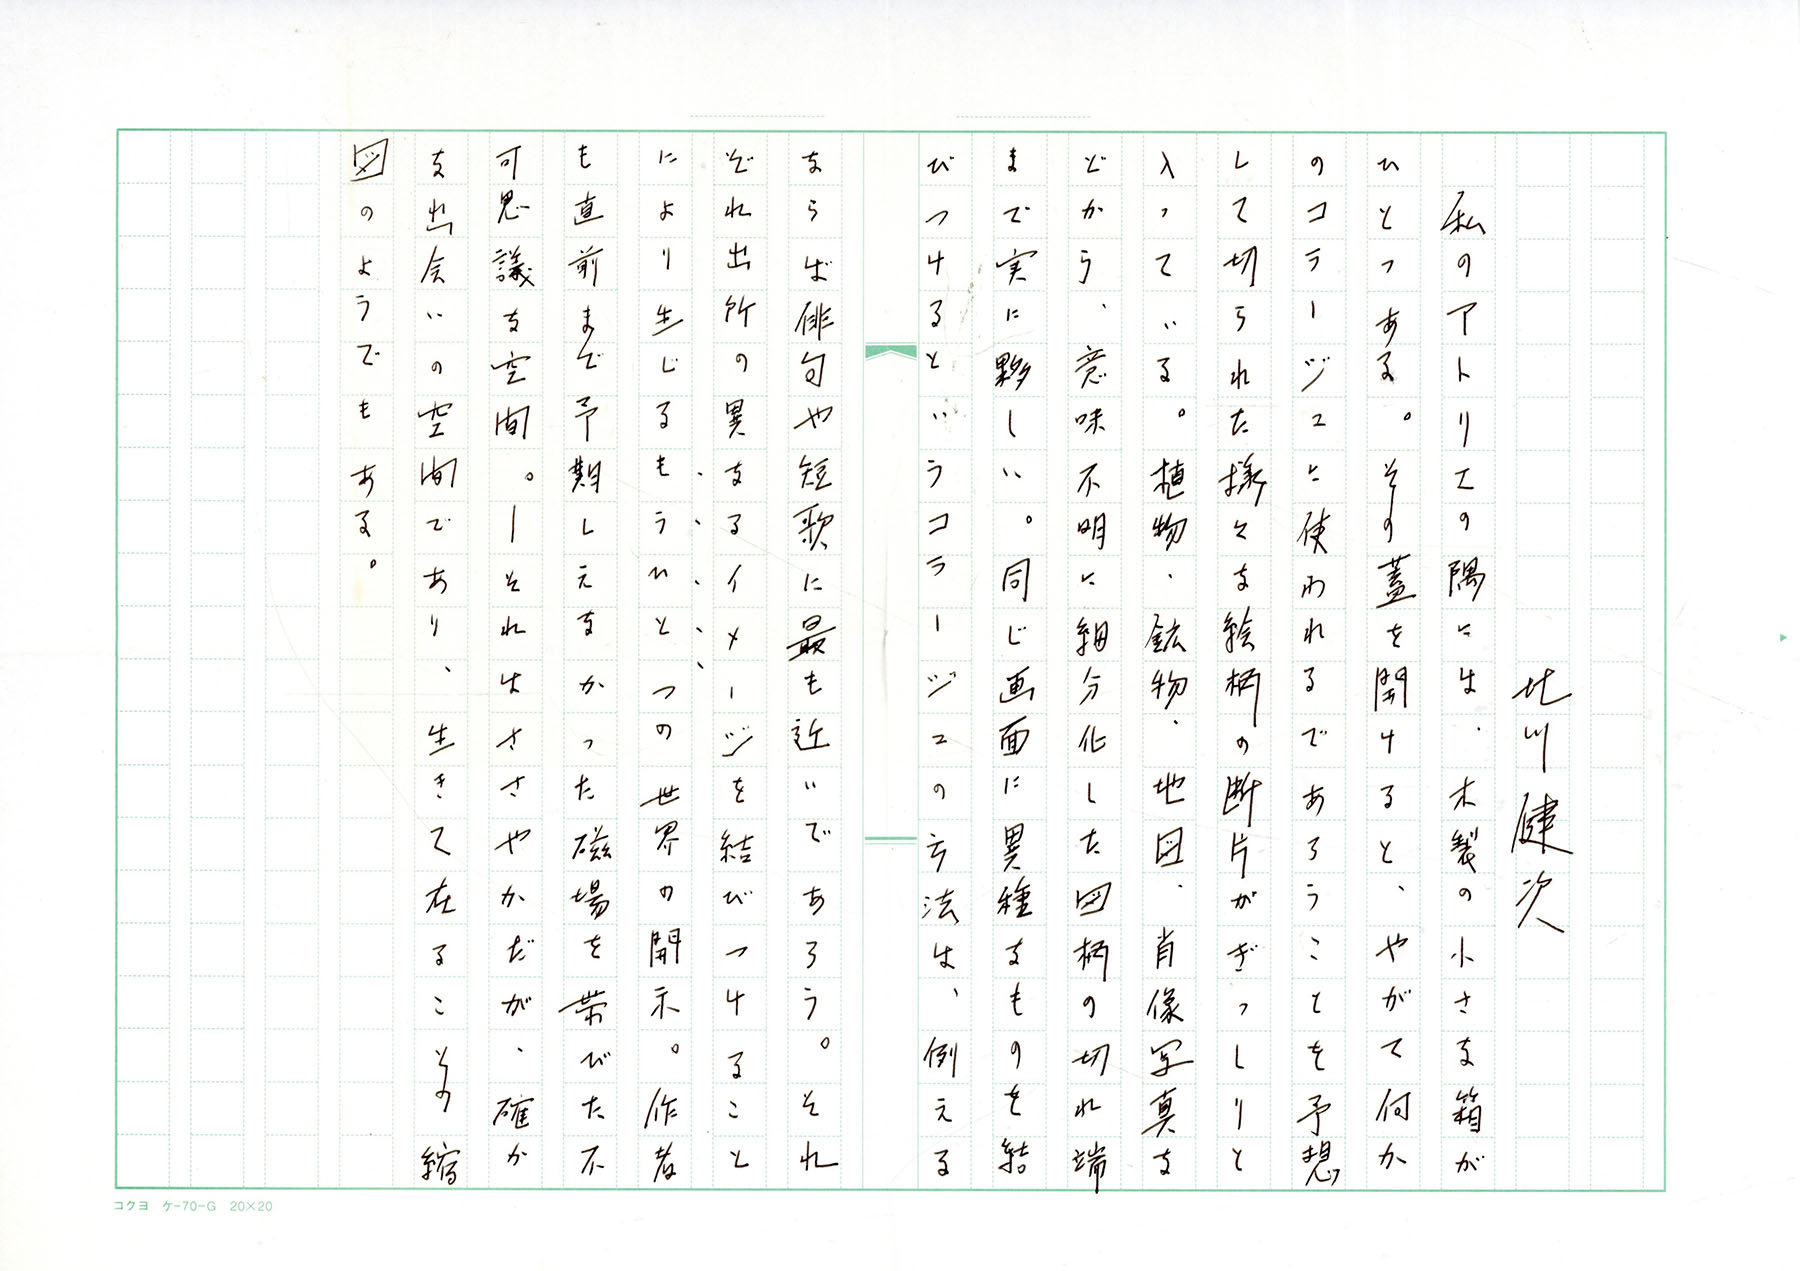 北川健次
私のアトリエの隅には、木製の小さな箱が
ひとつある。その蓋を開けると、やがて何か
のコラージュに使われるであろうことを予想
して切られた様々な絵柄の断片がぎっしりと
入っている。植物、鉱物、地図、肖像写真な
どから、意味不明に細分化した図柄の切れ端
まで実に夥しい。同じ画面に異種なものを結
びつけるというコラージュの方法は、例える
ならば俳句や短歌に最も近いであろう。それ
ぞれ出所の異なるイメージを結びつけること
により生じるもうひとつの世界の開示。作者
も直前まで予期しえなかった磁場を帯びた不
可思議な空間。ーそれはささやかだが、確か
な出会いの空間であり、生きて在ることの縮
図のようでもある。
コクヨ ケ-70-G 20×20